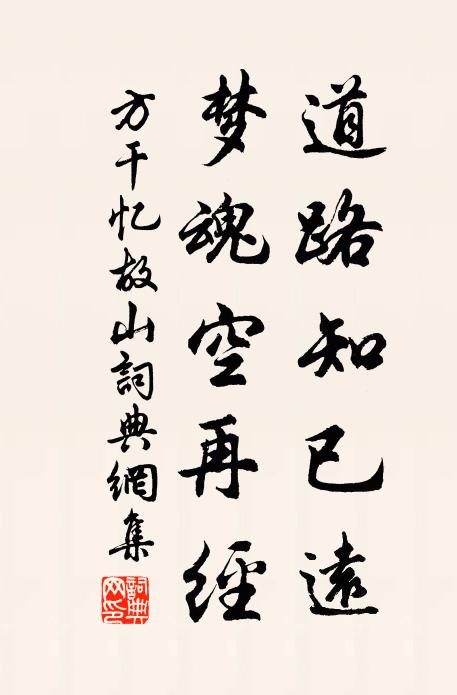 道路知已遠
梦魂空再經
方干忆故山詞典網集
詞典网印